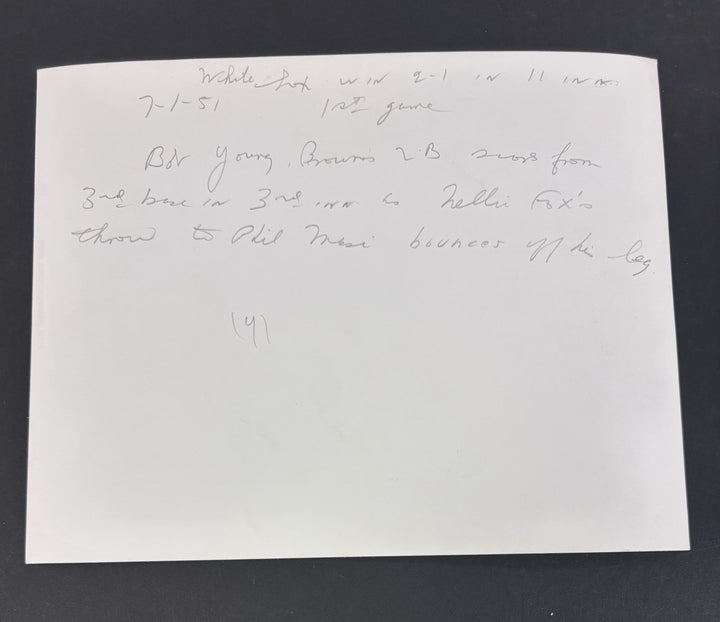 White Sox win 2-1 in 11 inns
7-1-51 1st game
Bob Young, Browns 2B scores from
3rd base in 3rd inn as Nellie Fox's
throw to Phil Masi bounces off his leg.
(4)